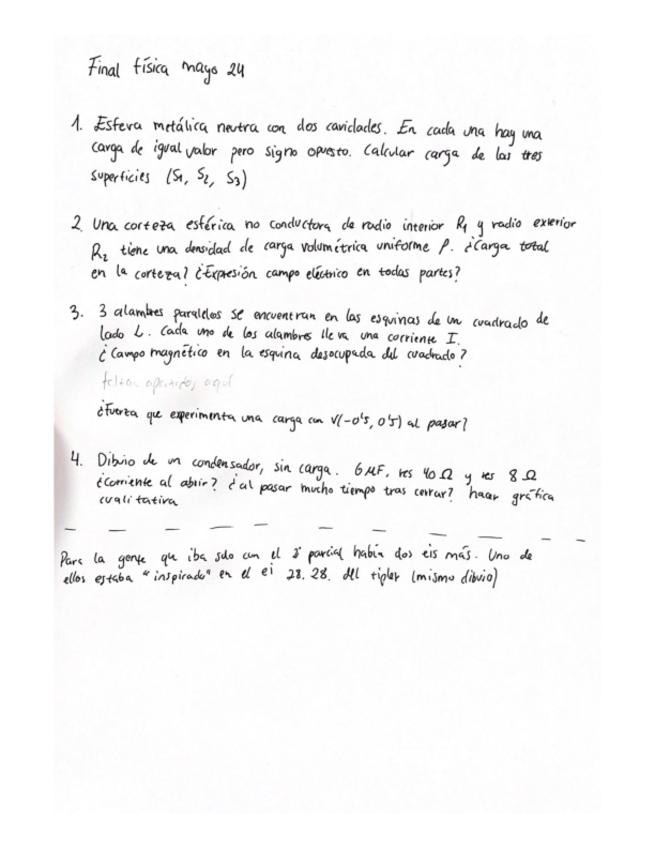 Final física mayo 24
1. Esfera metálica neutra con dos cavidades. En cada una hay una
carga de igual valor pero signo opuesto. Calcular carga de las tres
superficies (S1, S2, S3)
2. Una corteza esférica no conductora de radio interior R1 y radio exterior
R2 tiene una densidad de carga volumétrica uniforme ρ. ¿Carga total
en la corteza? ¿Expresión campo eléctrico en todas partes?
3. 3 alambres paralelos se encuentran en las esquinas de un cuadrado de
lado L. Cada uno de los alambres lleva una corriente I.
¿Campo magnético en la esquina desocupada del cuadrado?
faltan apartados aquí
¿Fuerza que experimenta una carga con v(-0'5, 0'5) al pasar?
4. Dibujo de un condensador, sin carga. 6 μF, res 40 Ω y res 8 Ω
¿Corriente al abrir? ¿al pasar mucho tiempo tras cerrar? hacer gráfica
cualitativa
Para la gente que iba solo con el parcial había dos ejs más. Uno de
ellos estaba "inspirado" en el ej 28.28. del tipler (mismo dibujo)